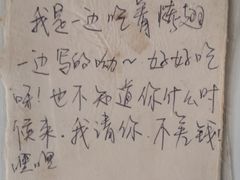 我是一边吃着烤翅
一边写的呦~好好吃
呀!也不知道你什么时
候来.我请你.不差钱!
嘿嘿